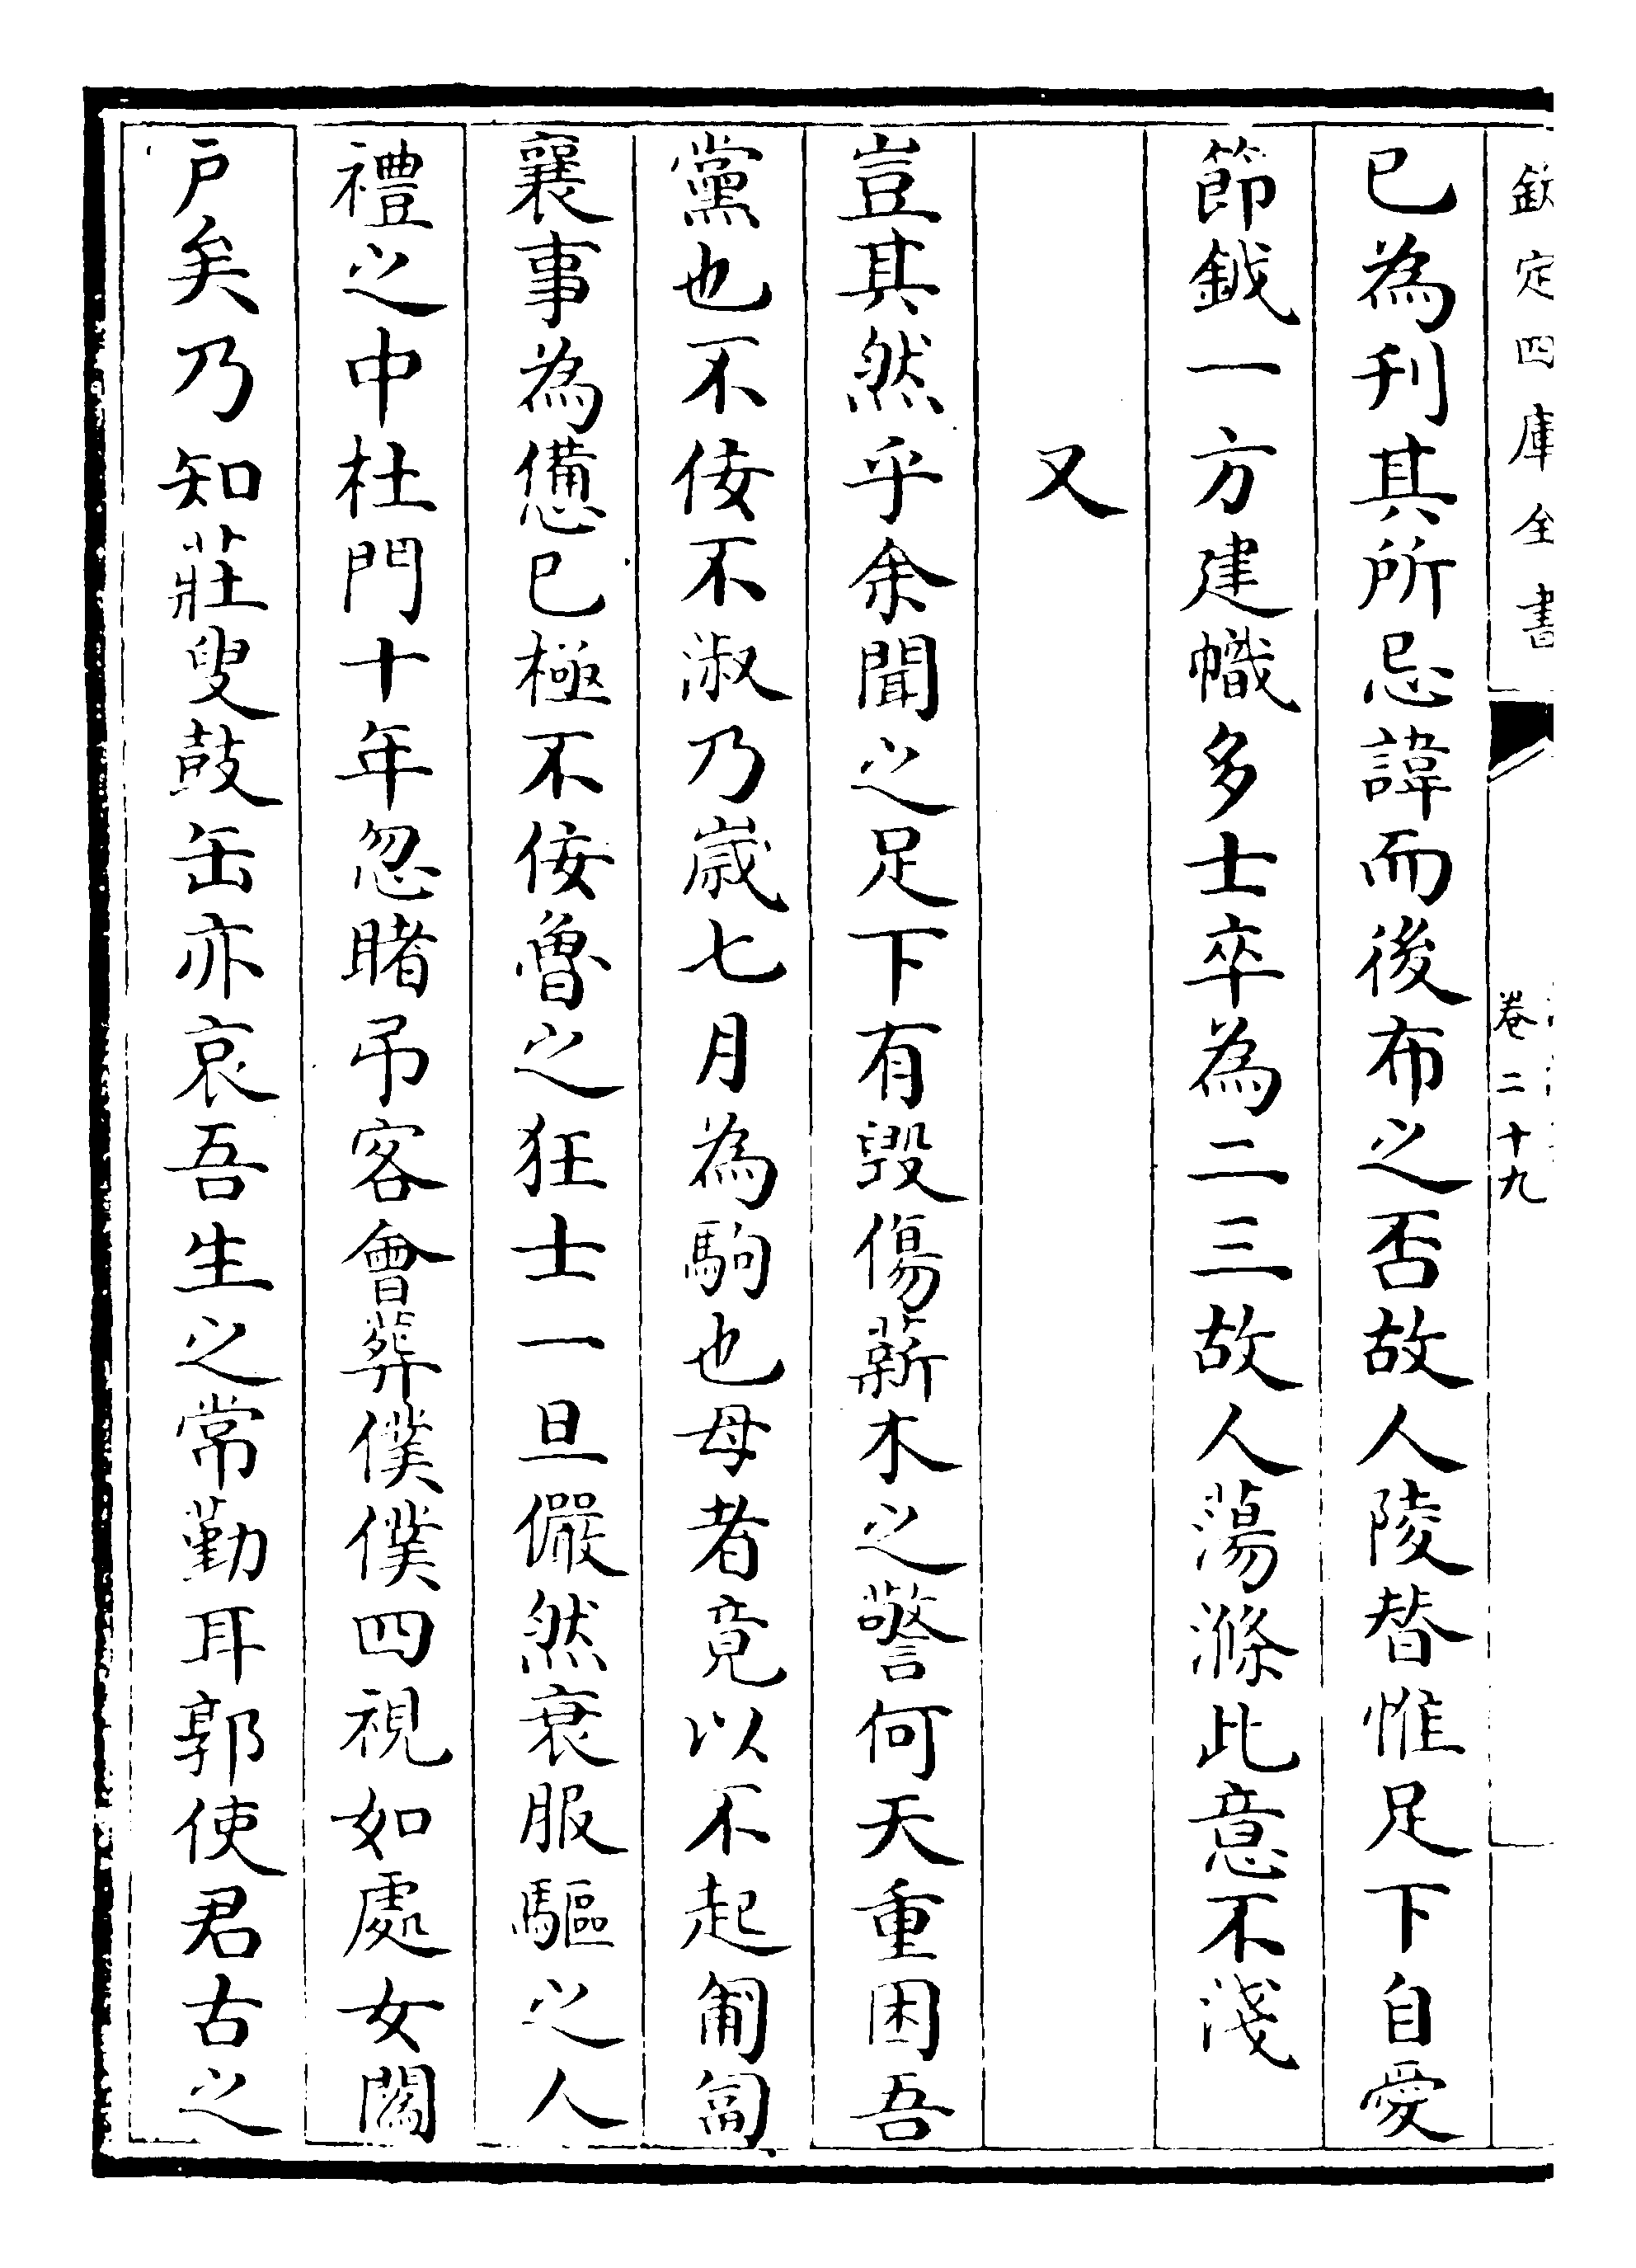 欽定四庫全書
卷二十九
已為刋其所忌諱而後布之否故人陵替惟足下自愛
節鉞一方建幟多士卒為二三故人蕩滌此意不淺
又
豈其然乎余聞之足下有毀傷薪木之警何天重困吾
黨也不佞不淑乃歳七月為駒也母者竟以不起匍匐
襄事為憊已極不佞魯之狂士一旦儼然衰服驅之人
禮之中杜門十年忽睹弔客會葬僕僕四視如處女闔
戶矣乃知莊叟鼓缶亦哀吾生之常勤耳郭使君古之